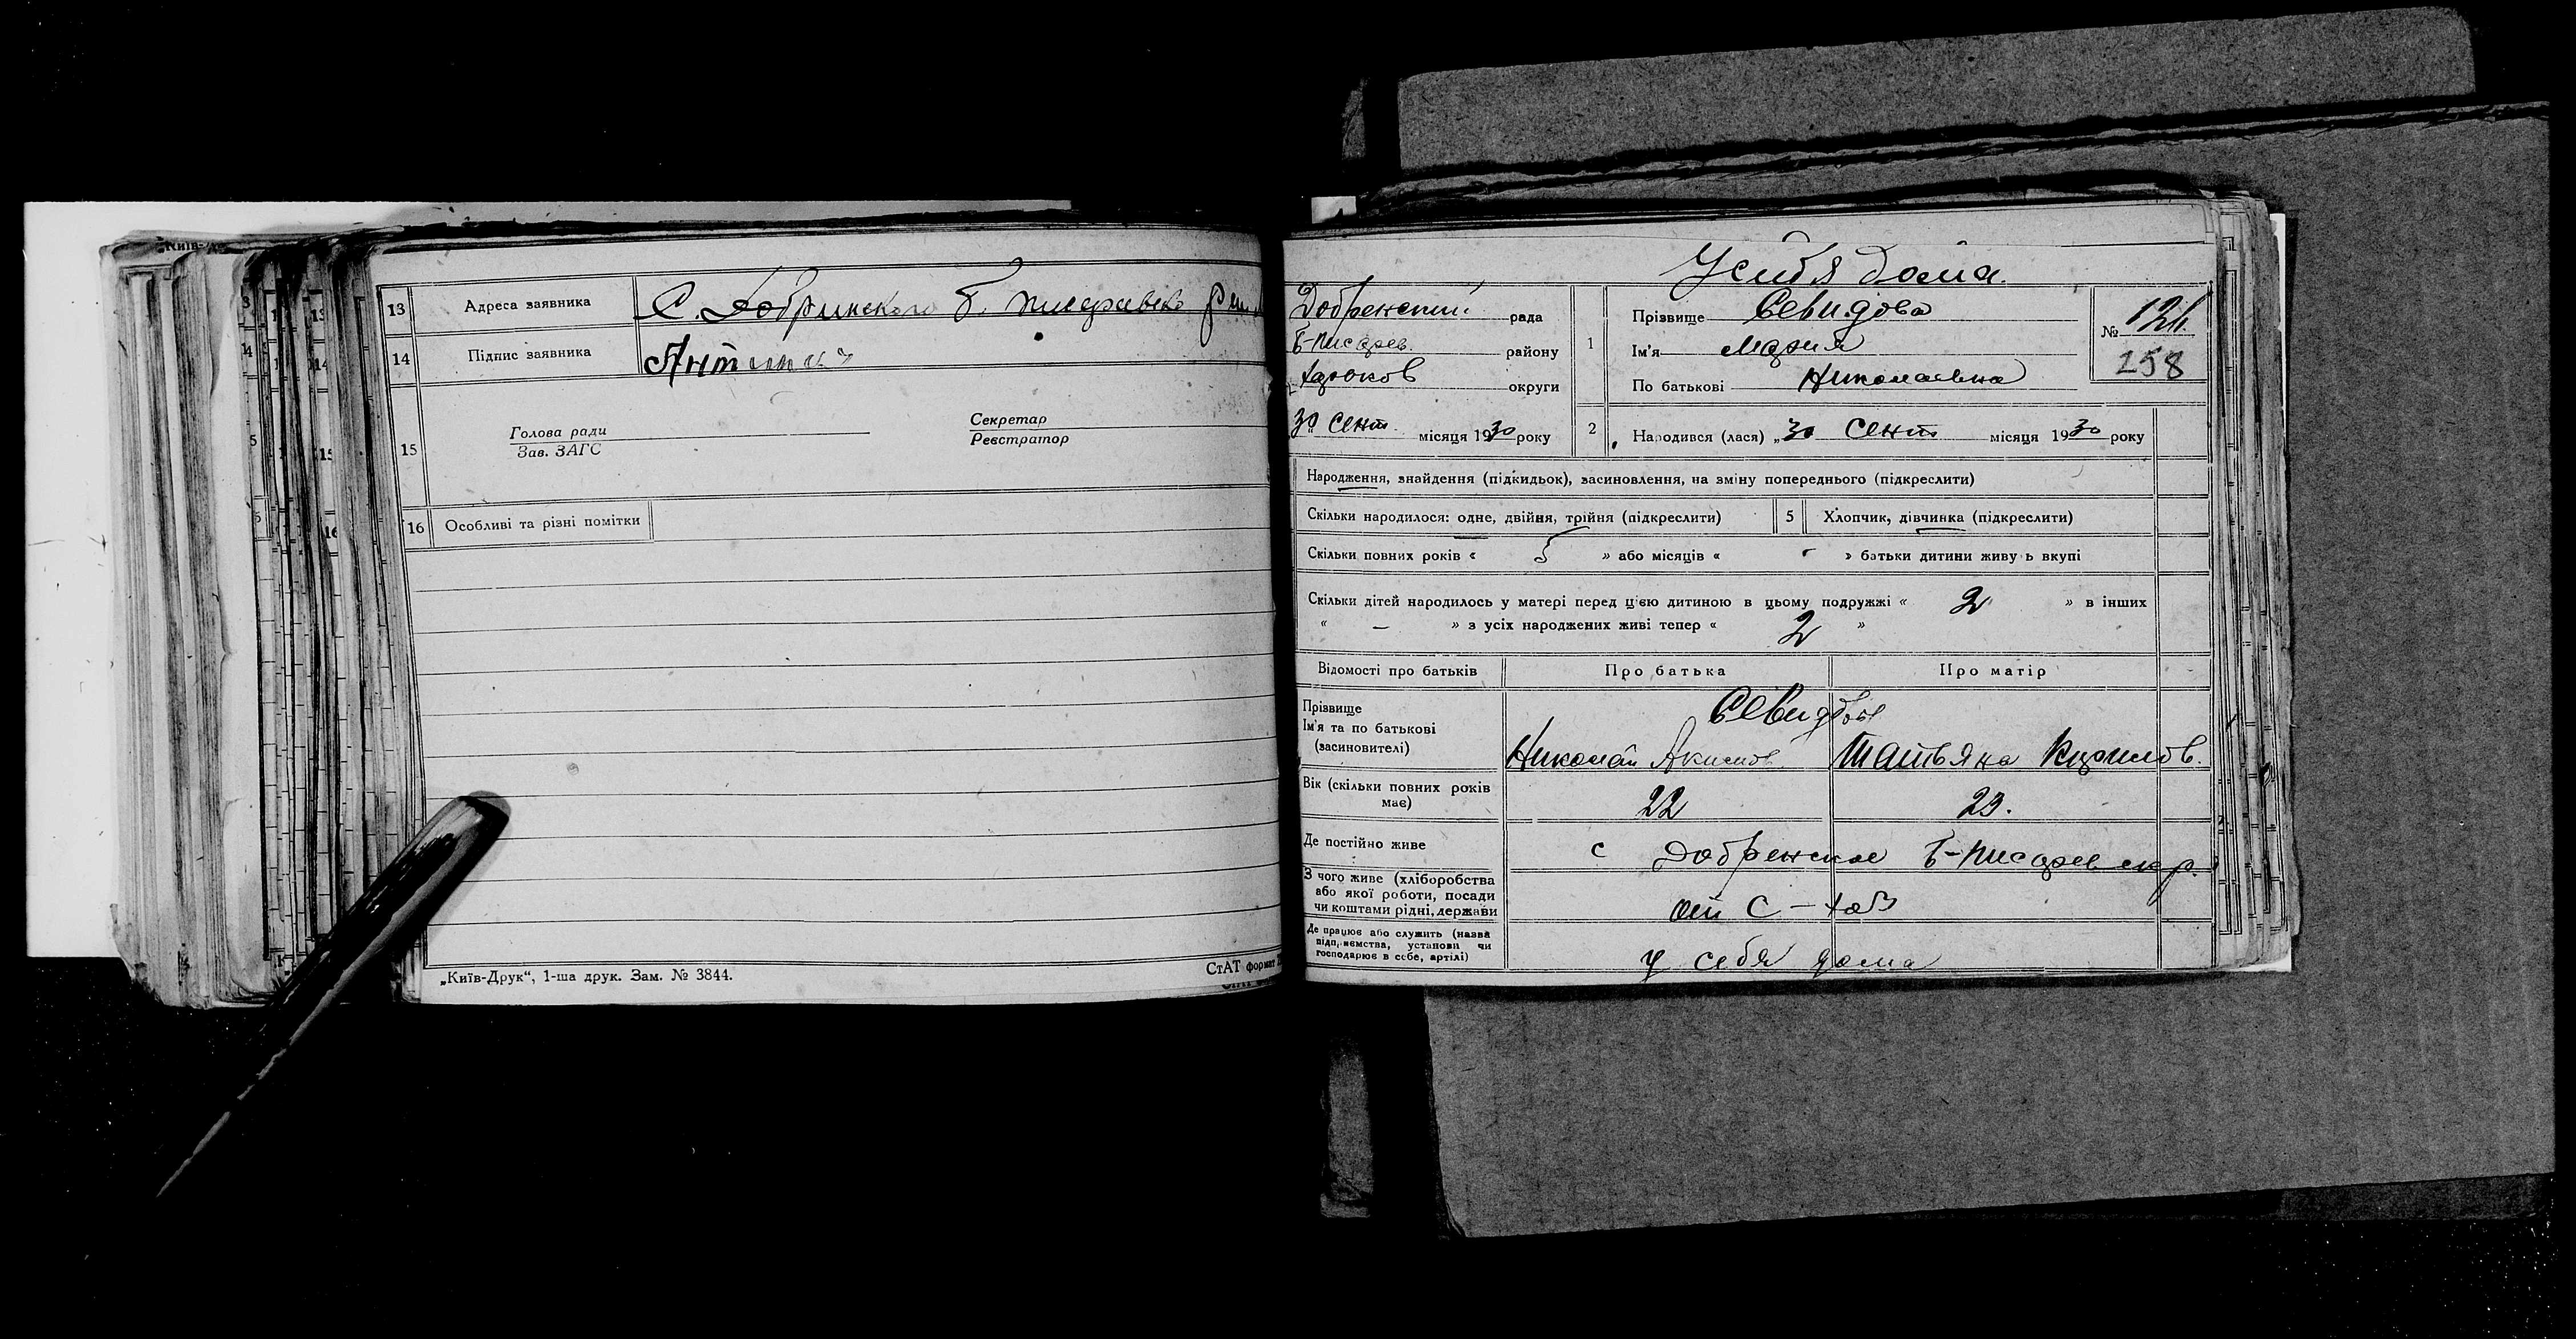 13 Адреса заявника С. Добринского Б. писаревско
14 Підпис заявника
15 Голова ради Секретар
Зав. ЗАГС Реєстратор
16 Особливі та різні помітки
„Київ-Друк“, 1-ша друк. Зам. № 3844. СтАТ формат
У себя дома.
Добренский рада
Б-писарев. району
Харьков округи
30 сент. місяця 1930 року
1 Прізвище Севидова
Ім'я Мария
По батькові Николаевна
№ 126
258
2 Народився (лася) „30 сент місяця 1930 року
Народження, знайдення (підкидьок), засиновлення, на зміну попереднього (підкреслити)
Скільки народилося: одне, двійня, трійня (підкреслити) 5 Хлопчик, дівчинка (підкреслити)
Скільки повних років « 5 » або місяців « - » батьки дитини живуть вкупі
Скільки дітей народилось у матері перед цією дитиною в цьому подружжі « 2 » в інших
« — » з усіх народжених живі тепер « 2 »
Відомості про батьків Про батька Про матір
Прізвище Севидовы
Ім'я та по батькові
(засиновителі) Николай Акимов. Татьяна Кирилов.
Вік (скільки повних років
має) 22 23.
Де постійно живе с Добренское Б-писаревск р.
З чого живе (хліборобства
або якої роботи, посади
чи коштами рідні, держави от с-хоз
Де працює або служить (назва
підприємства, установи чи
господарює в себе, артілі) у себя дома